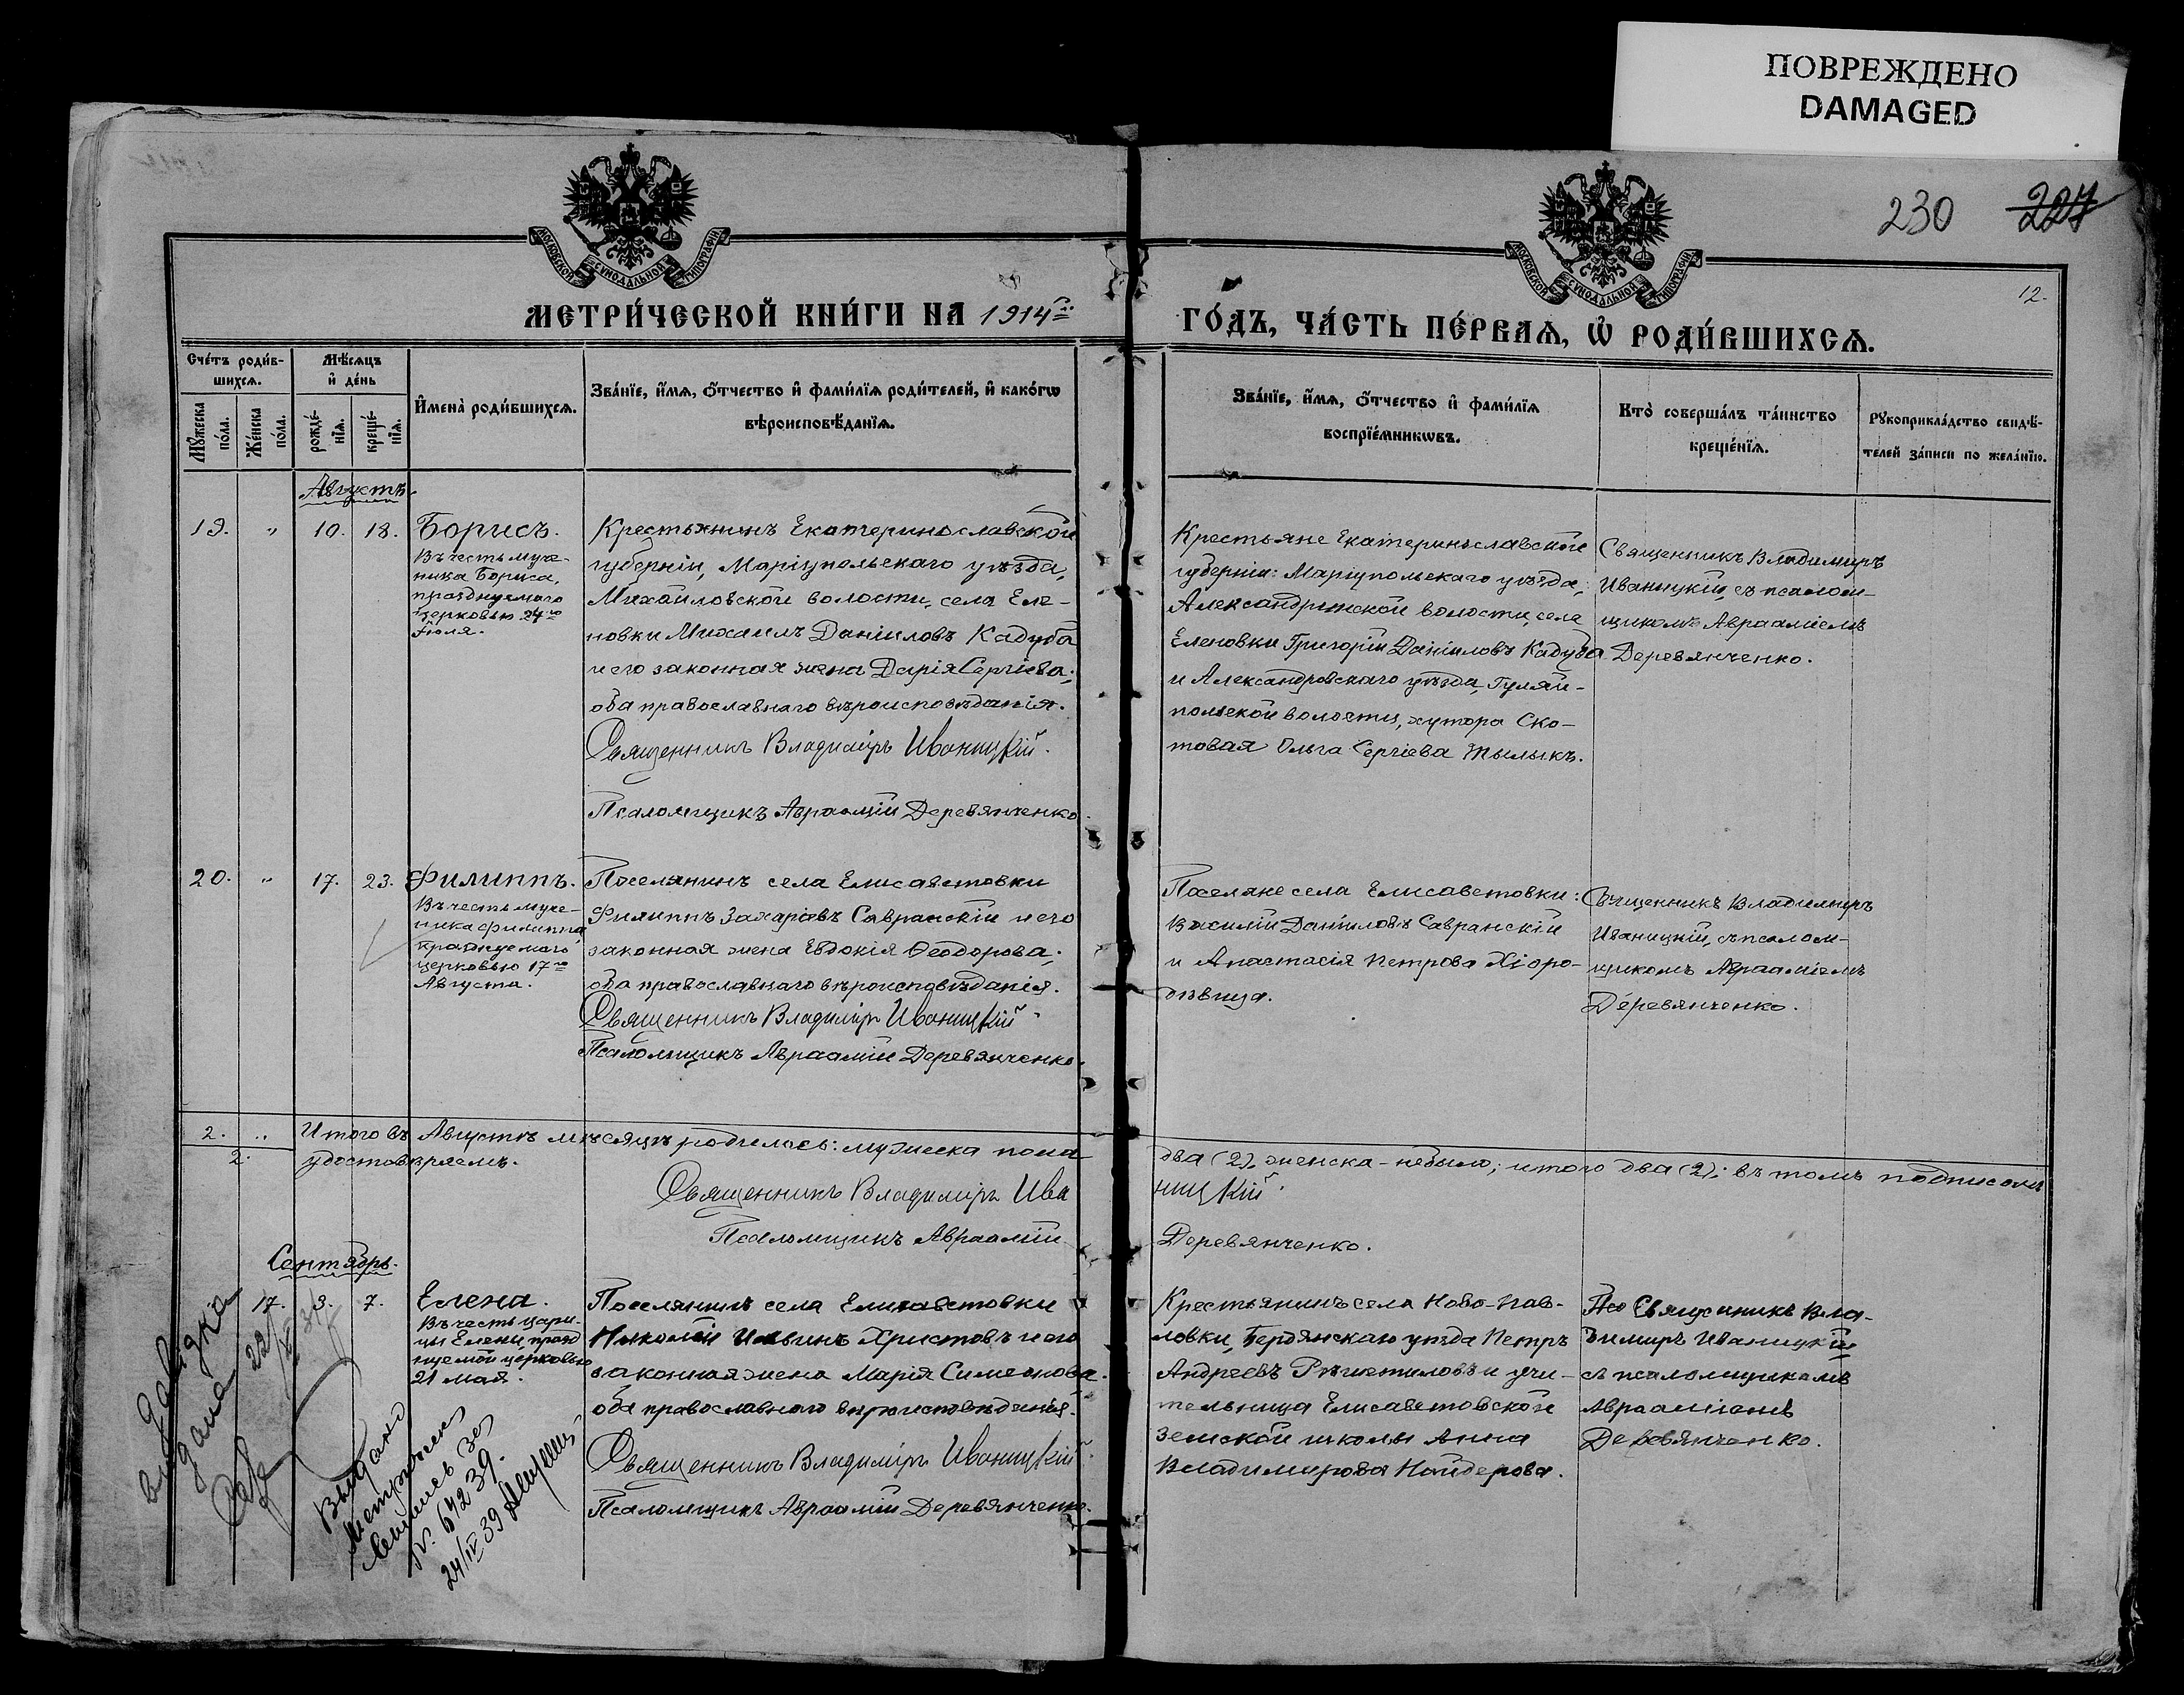 ПОВРЕЖДЕНО
DAMAGED
230 227
12.
МОСКОВСКОЙ СѴНОДАЛЬНОЙ ТИПОГРАФІИ
МОСКОВСКОЙ СѴНОДАЛЬНОЙ ТИПОГРАФІИ
МЕТРИ́ЧЕСКОЙ КНИ́ГИ НА 1914 ГО́ДЪ, ЧА́СТЬ ПЕ́РВАѦ, Ѿ РОДИ́ВШИХСѦ.
Сче́тъ роди́в-
шихсѧ.
Мꙋ́жеска по́ла.
Же́нска по́ла.
Мѣ́сѧцъ и҆ де́нь
рожде́-
нїѧ.
креще́-
нїѧ.
И҆мена̀ роди́вшихсѧ.
Зва́нїе, и҆́мѧ, ѻ҆́тчество и҆ фами́лїѧ роди́телей, и҆ како́гѡ
вѣроисповѣ́данїѧ.
Зва́нїе, и҆́мѧ, ѻ҆́тчество и҆ фами́лїѧ
воспрїе́мникѡвъ.
Кто̀ соверша́лъ та́инство
креще́нїѧ.
Рꙋкоприкла́дство свидѣ́-
телей за́писи по жела́нїю.
Августъ.
19. " 10. 18. Борисъ.
Въ честь муче-
ника Бориса,
празднуемаго
церковью 24го
Іюля.
Крестьянинъ Екатеринославской
губерніи, Маріупольскаго уѣзда,
Михайловской волости, села Еле-
новки Михаилъ Даніиловъ Кадуба
и его законная жена Дарія Сергіева;
оба православнаго вѣроисповѣданія.
Священникъ Владиміръ Иваницкій.
Псаломщикъ Авраамій Деревянченко.
Крестьяне Екатеринославской
губерніи: Маріупольскаго уѣзда,
Александринской волости, села
Еленовки Григорій Даніиловъ Кадуба
и Александровскаго уѣзда, Гуляй-
польской волости, хутора Ско-
товая Ольга Сергіева Тылыкъ.
Священникъ Владимиръ
Иваницкій, съ псалом-
щикомъ Авраамiемъ
Деревянченко.
20. " 17. 23. Филиппъ.
Въ честь муче-
ника Филиппа
празднуемаго
церковью 17го
Августа.
Поселянинъ села Елисаветовки
Филиппъ Захаріевъ Савранскій и его
законная жена Евдокія Ѳеодорова;
оба православнаго вѣроисповѣданія.
Священникъ Владиміръ Иваницкій.
Псаломщикъ Авраамій Деревянченко.
Поселяне села Елисаветовки:
Василій Даніиловъ Савранскій
и Анастасія Петрова Хіоро-
дѣвица.
Священникъ Владимиръ
Иваницкій, съ псалом-
щикомъ Авраамiемъ
Деревянченко.
2. " Итого въ Августѣ мѣсяцѣ родилось: мужеска пола два (2), женска - небыло; итого два (2); въ томъ подписомъ
2. удостовѣряемъ.
Священникъ Владиміръ Иваницкій.
Псаломщикъ Авраамій Деревянченко.
Сентябрь.
17. 3. 7. Елена.
Въ честь цари-
цы Елены, празд
нуемой церковью
21 мая.
Поселянинъ села Елисаветовки
Николай Ильвинъ Христовъ и его
законная жена Марія Симеонова.
оба православнаго вѣроисповѣданія.
Священникъ Владиміръ Иваницкій.
Псаломщикъ Авраамій Деревянченко.
Крестьянинъ села Ново-Пав-
ловки, Бердянскаго уѣзда Петръ
Андреевъ и учи-
тельница Елисаветовской
земской школы Анна
Владимирова Найдерова.
Священникъ Вла-
димиръ Иваницкій
съ псаломщикомъ
Авраамiемъ
Деревянченко.
видана
22/IV 37
Выдано
Метрическ
Свидельс за
№ 67239.
24/IV 39